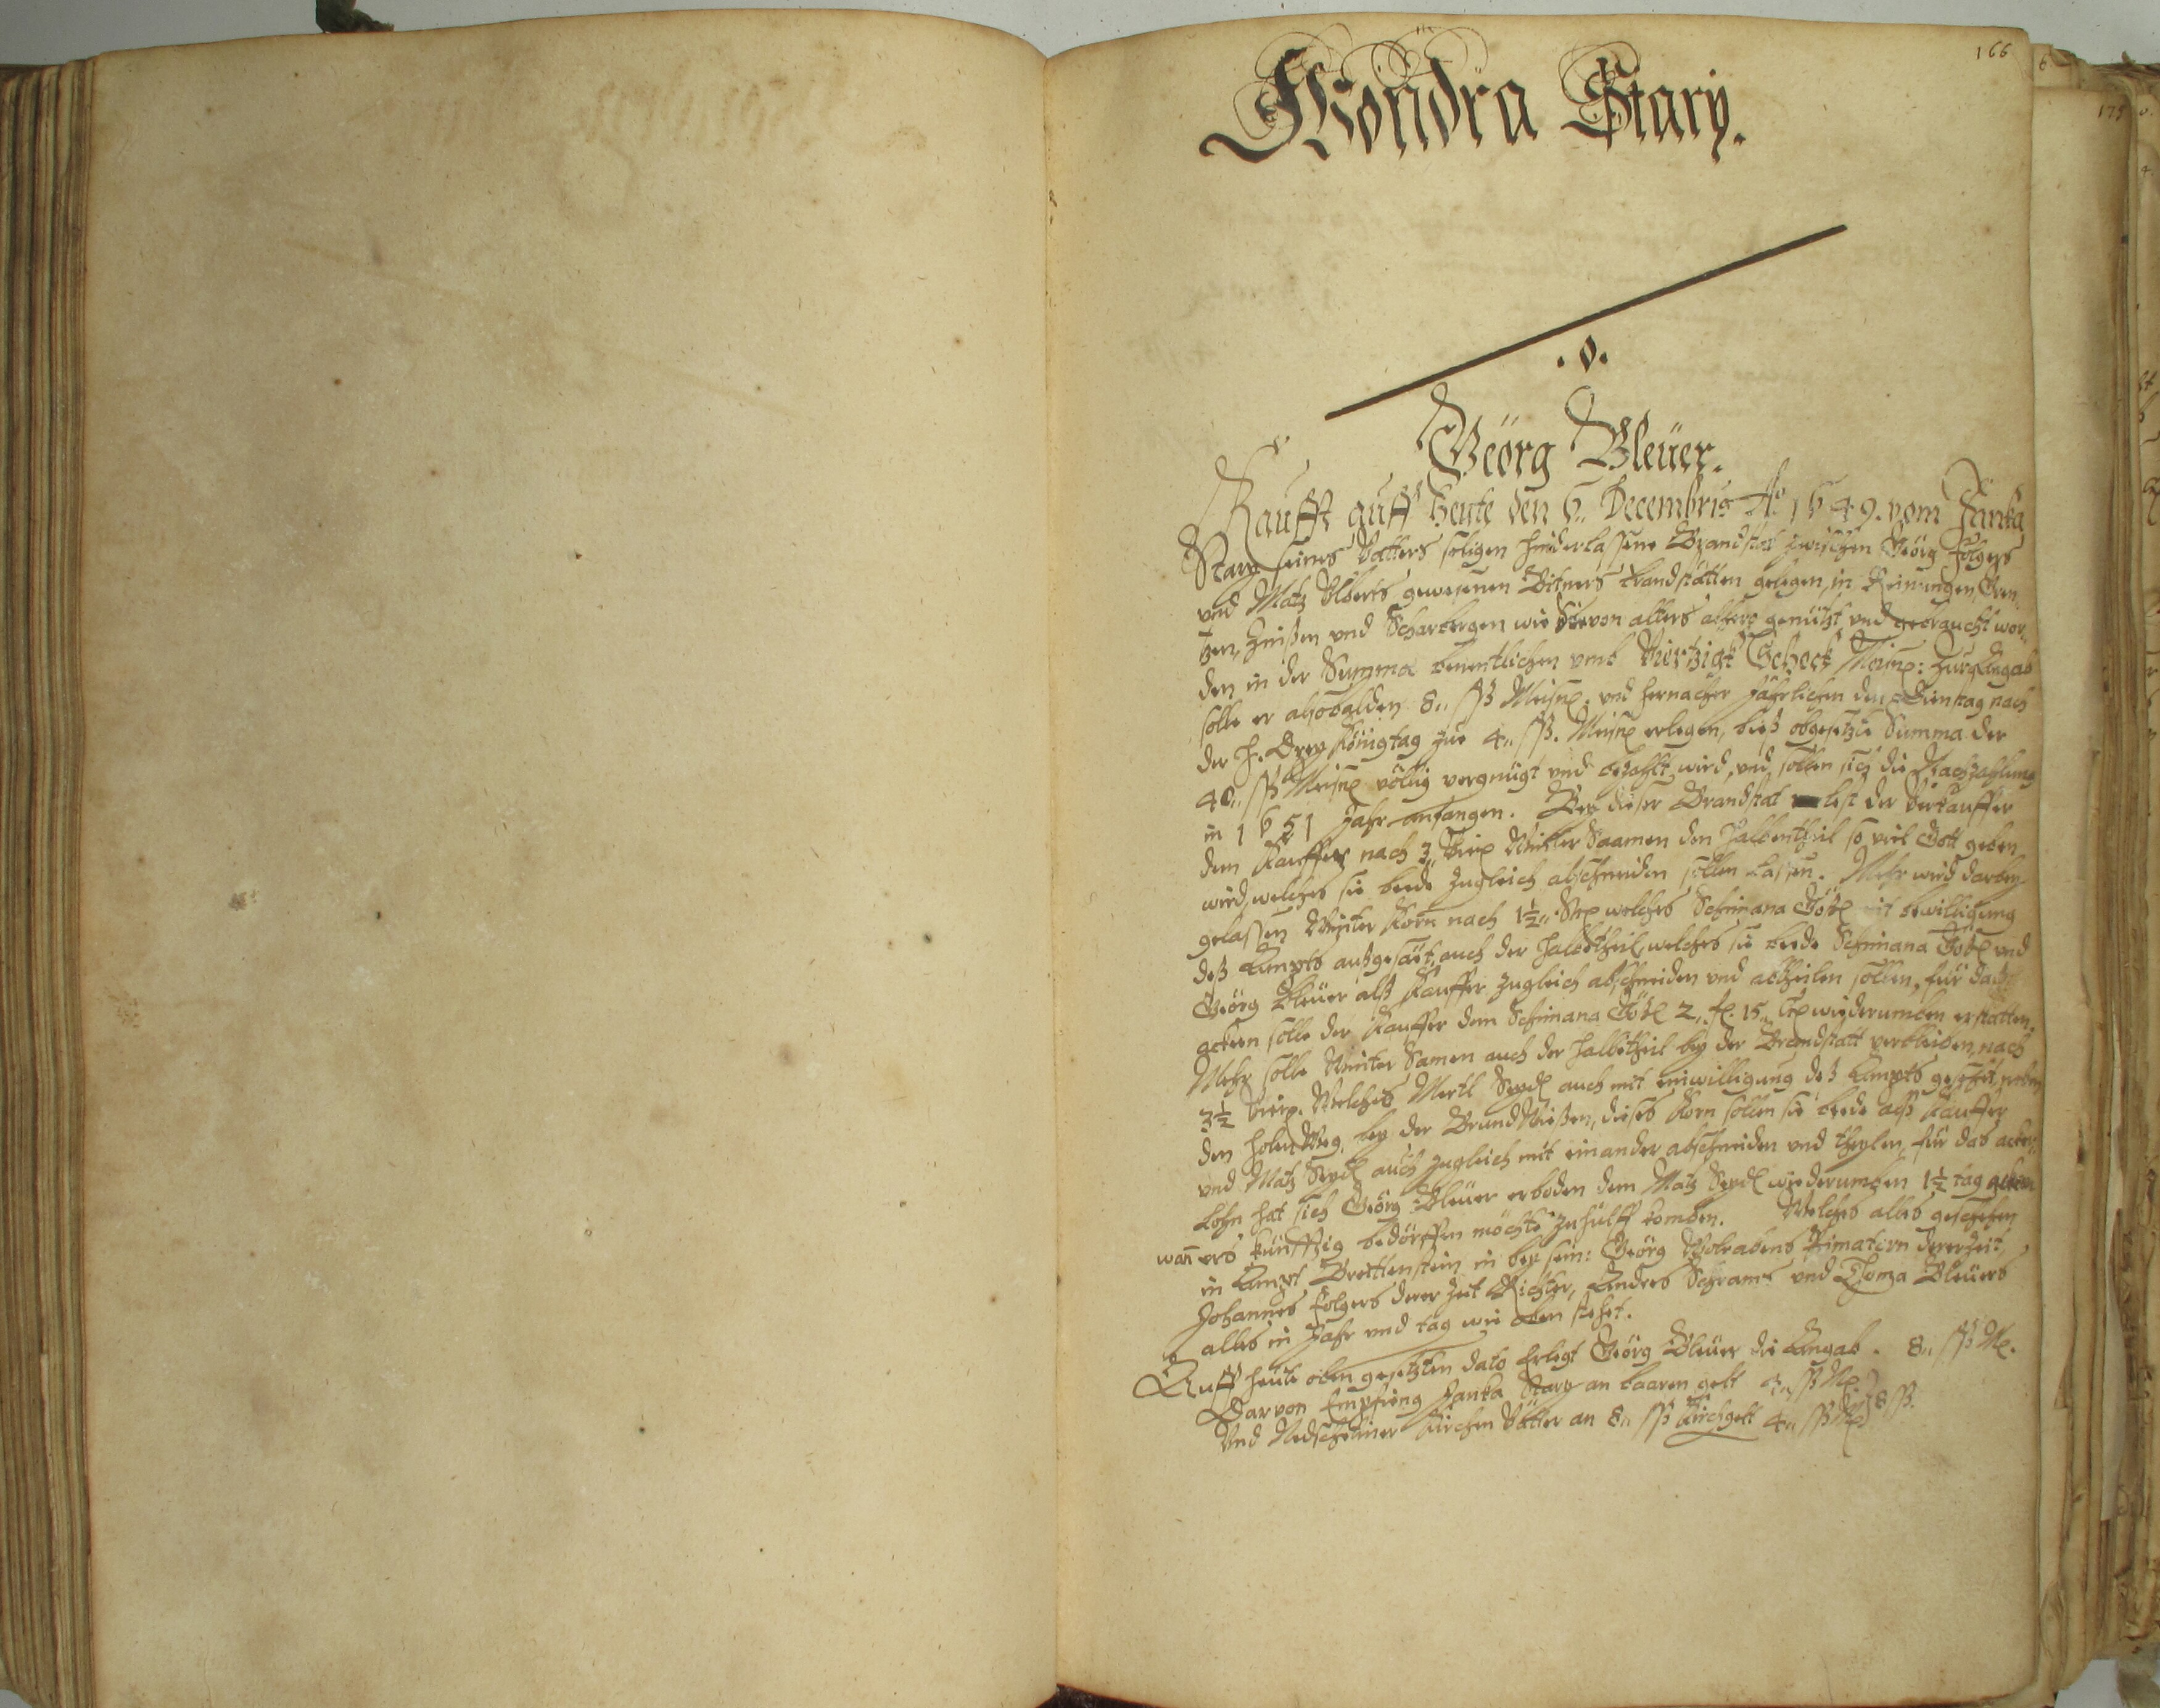 166
Wondra Stary.
.0.
Geörg Bleüer.
Kaufft auff heute den 6. Decembris Ao 1649. vom Janka
Stary seines Vatters seligen hinderlassene Brandstat zwischen Geörg Folgers
vnd Matz Alberts gewesenen Brandstätten gelegen, in Reinungen, Gren
tzen, Zinßen vnd Scharbergen wie Sie von alters altero genützt vnd gebraucht wor
den in der Summa benentlichen vmb Viertzigk Schock Meisn: Zur Angab
solle er alsobalden 8 ßß Meisn. vnd hernacher Jährlichen den Dienstag nach
der H. Drey Königtag zue 4 ßß. Meisn erlegen, bieß obgesetzte Summa der
40 ßß Meisn völlig vergnügt vnd bezahlt wird, vnd sollen sich die Nachzahlung
in 1651 Jahr anfangen. Bey dieser Brandstat lest der Verkauffer
dem Kauffer nach 3 Winter Saamen den halbentheil so viel Gott geben
wird, welches sie beede zugleich abschneiden sollen lassen. Mehr wird darbey
gelassen Winter Korn nach 1½ welches Schimana mit bewilligung
deß Ampts außgesäet, auch der halbetheil, welches sie beede Schimana vnd
Geörg Bleüer alß Kauffer zugleich abschneiden vnd abtheilen sollen, für daß
ackern solle der Kauffer dem Schimana 2 fl. 15 wiederumben erstatten.
Mehr solle Winter Samen auch der halbetheil bey der Brandstatt verbleiben, nach
3½ Welches Mertl Seydl auch mit einwilligung deß Ampts gesehet neben
den holen Weg, bey der Grund Wiesen, dieses Korn sollen sie beede alß Kauffer
vnd Matz Seydl auch zugleich mit einander abschneiden vnd theylen, für das acker
Lohn hat sich Geörg Bleüer erboden dem Matz Seydl wiederumben 1½ tag ackern
wann ers künfftig bedörffen möchte zuhülff komben. Welches alles geschehen
in Ampt Breittenstein in bey sein: Geörg Wolrabens dererzeit,
Johannes Folgers derer zeit Richter, Anders Schrams vnd Thoma Bleüers
alles in Jahr vnd tag wie oben stehet.
Auff heute oben gesetzten dato Erlegt Geörg Bleüer die Angab. 8 ßß M.
Darvon Empfieng Janka Stary an baaren gelt 4 ßß M
Vnd Netschetiner Kirchen Vätter an 8 ßß Kirchgelt 4 ßß M 8 ßß.
175